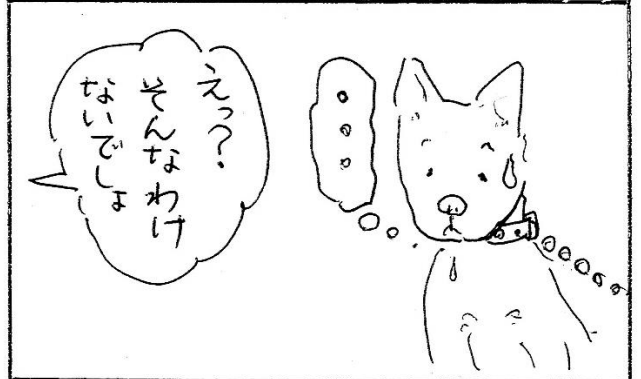 えっ?
そんなわけ
ないでしょ